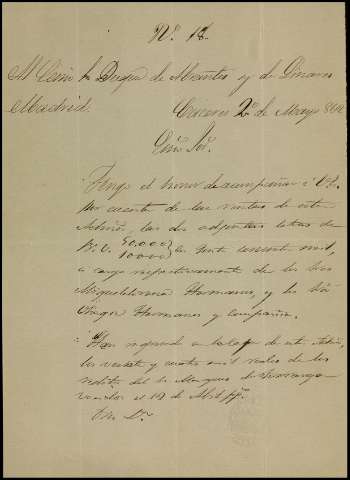 Nº. 18.
Al Exmo Sr Duque de Abrantes y de Linares
Madrid.
Caceres 2 de Mayo 86
Exmo Sor.
Tengo el honor de acompañar á V.E.
por cuenta de las rentas de este
Admon, las dos adjuntas letras de
R. V. 50.000 }
10000 }
á cargo respectivamente de los Sres
Hermanos, y los Sres
Hermanos y compañia.
Han ingresado en la caja de este
los veinte y cuatro mil reales de los
reditos del Sr Marques de
vencidos el 19 de Abril ppº.